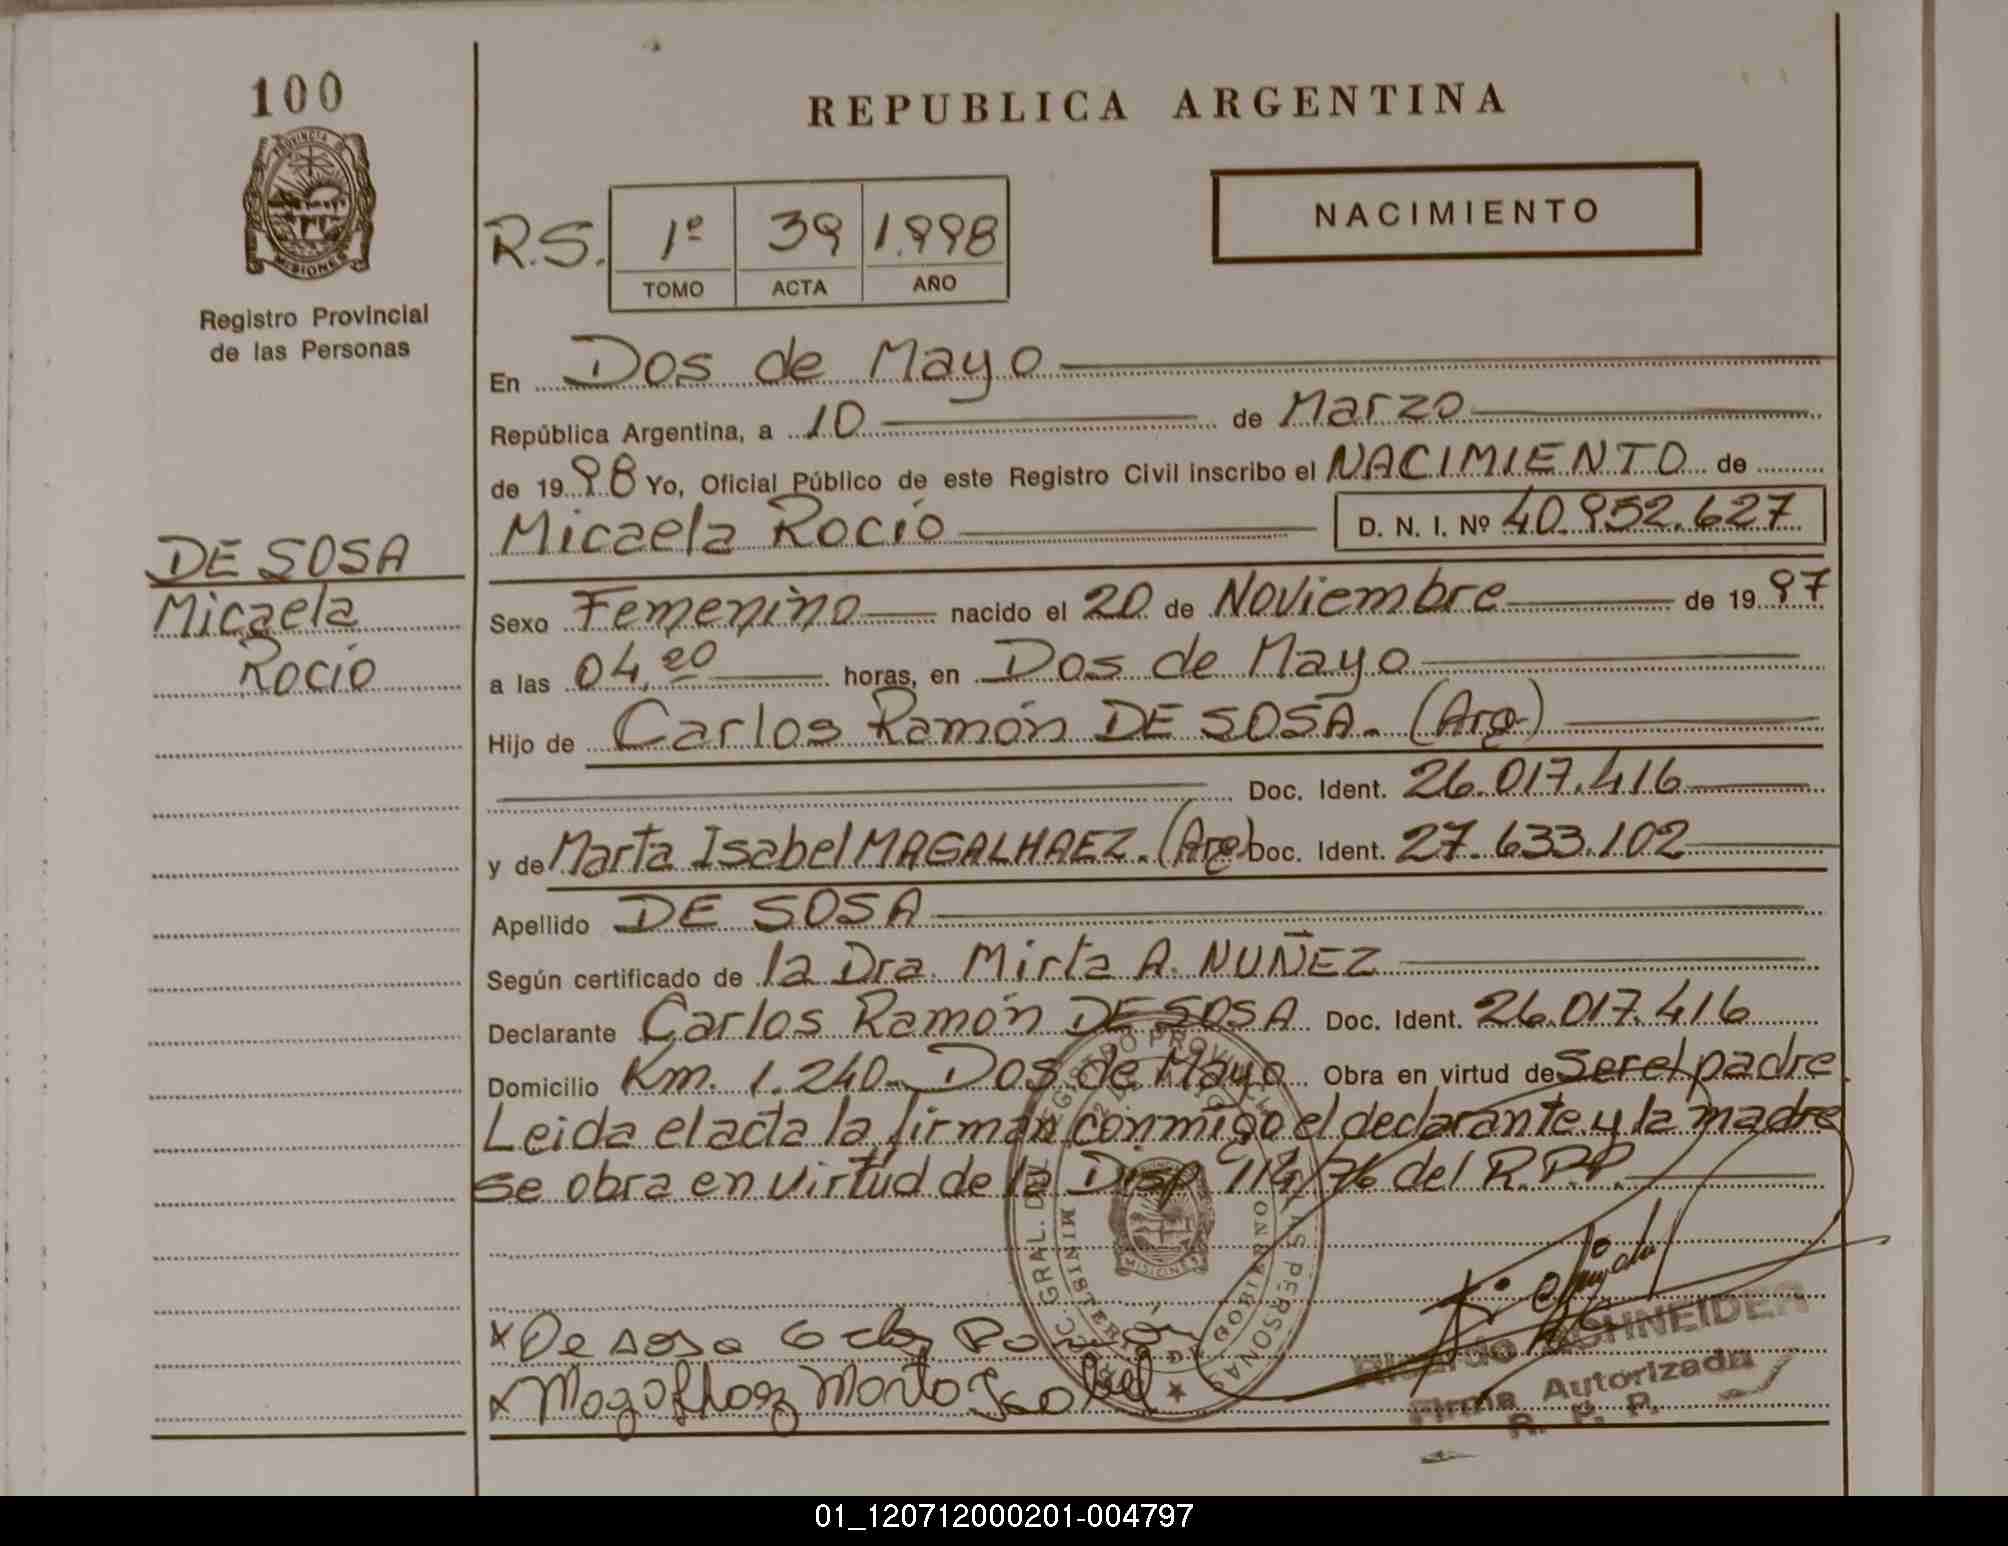 100
PROVINCIA DE
MISIONES
Registro Provincial
de las Personas
DE SOSA
Micaela
Rocío
REPUBLICA ARGENTINA
NACIMIENTO
R.S. 1º 39 1.998
TOMO ACTA AÑO
En Dos de Mayo
República Argentina, a 10 de Marzo
de 1998 Yo, Oficial Público de este Registro Civil inscribo el NACIMIENTO de
Micaela Rocío D. N. I. Nº 40.952.627
Sexo Femenino nacido el 20 de Noviembre de 1997
a las 04,20 horas, en Dos de Mayo
Hijo de Carlos Ramón DE SOSA. (Arg)
Doc. Ident. 26.017.416
y de Marta Isabel MAGALHAEZ. (Arg) Doc. Ident. 27.633.102
Apellido DE SOSA
Según certificado de la Dra. Mirta A. NUÑEZ
Declarante Carlos Ramón DE SOSA Doc. Ident. 26.017.416
Domicilio Km. 1.240. Dos de Mayo Obra en virtud de ser el padre
Leida el acta la firman conmigo el declarante y la madre
se obra en virtud de la Disp 114/76 del R.P.P.
MISIONES
x De sosa Carlos Ramón
x Magalhaez Marta Isabel
Ricardo SCHNEIDER
Firma Autorizada
R. P. P.
01_120712000201-004797